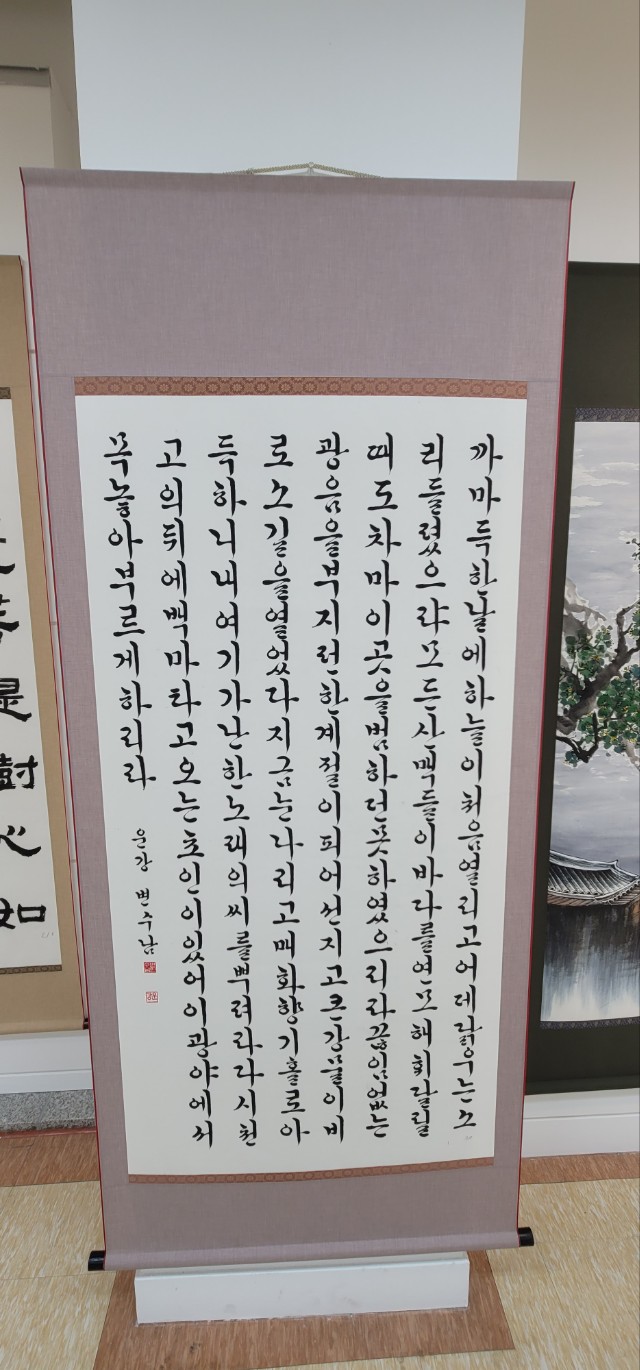 까마득한날에하늘이처음열리고어데닭우는소
리들렸으랴모든산맥들이바다를연모해휘달릴
때도차마이곳을범하던못하였으리라끊임없는
광음을부지런한계절이피어선지고큰강물이비
로소길을열었다지금눈나리고매화향기홀로아
득하니내여기가난한노래의씨를뿌려라다시천
고의뒤에백마타고오는초인이있어이광야에서
목놓아부르게하리라
운강 변수남
心如